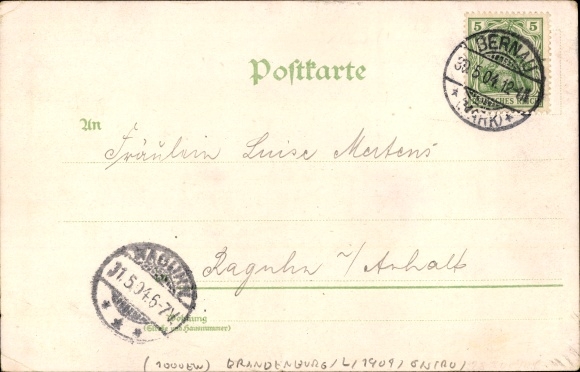 5 5
BERNAU
31.5.04.12-1N.
* (MARK) *
Postkarte
An
Fräulein Luise Mertens
Raguhn i/Anhalt
RAGUHN
31.5.04.6-7N.
* * *
Wohnung
(Straße und Hausnummer)
(1000EW) BRANDENBURG/L/1909/